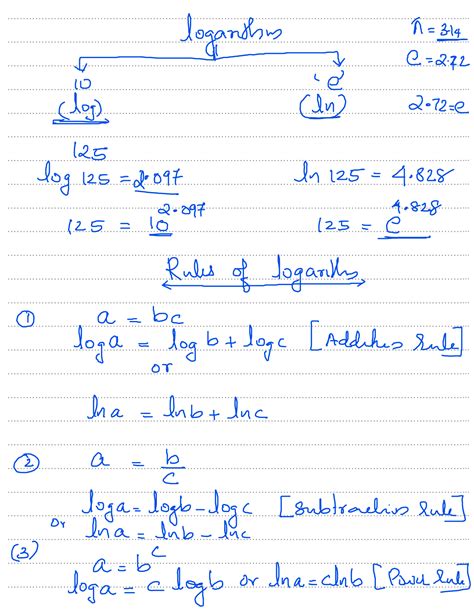 logarithms
π = 3.14
e = 2.72
10
'e'
(log)
(ln)
2.72 = e
125
log 125 = 2.097
ln 125 = 4.828
125 = 10^2.097
125 = e^4.828
Rules of logarithms
① a = bc
log a = log b + log c [Addition Rule]
or
ln a = ln b + ln c
② a = b/c
log a = log b - log c [Subtraction Rule]
or ln a = ln b - ln c
(3) a = b^c
log a = c log b or ln a = c ln b [Power Rule]